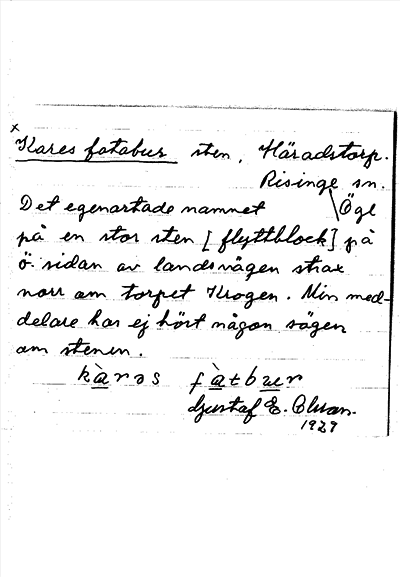 x
Kares fatabur sten, Häradstorp.
Risinge sn.
Det egenartade namnet Ögl
på en stor sten [flyttblock] på
ö. sidan av landsvägen strax
norr om torpet Krogen. Min med-
delare har ej hört någon sägen
om stenen.
kàrəs fàtbuer
Gustaf E. Olsson.
1929